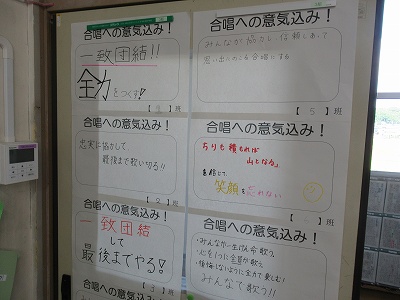 合唱への意気込み!
一致団結!!
全力をつくす!
班
合唱への意気込み!
みんなが協力し、信頼しあって
思い出にのこる合唱にする
【5】班
合唱への意気込み!
忠実に協力して、
最後まで歌い切る!!
【2】班
合唱への意気込み!
ちりも積もれば
山となる。
笑顔を忘れない
班
合唱への意気込み!
一致団結
して
最後までやる!
【3】班
合唱への意気込み!
・みんなが一生けん命歌う
・心を1つに全員が歌う
・後悔しないように全力で楽しむ!
みんなで歌う!!